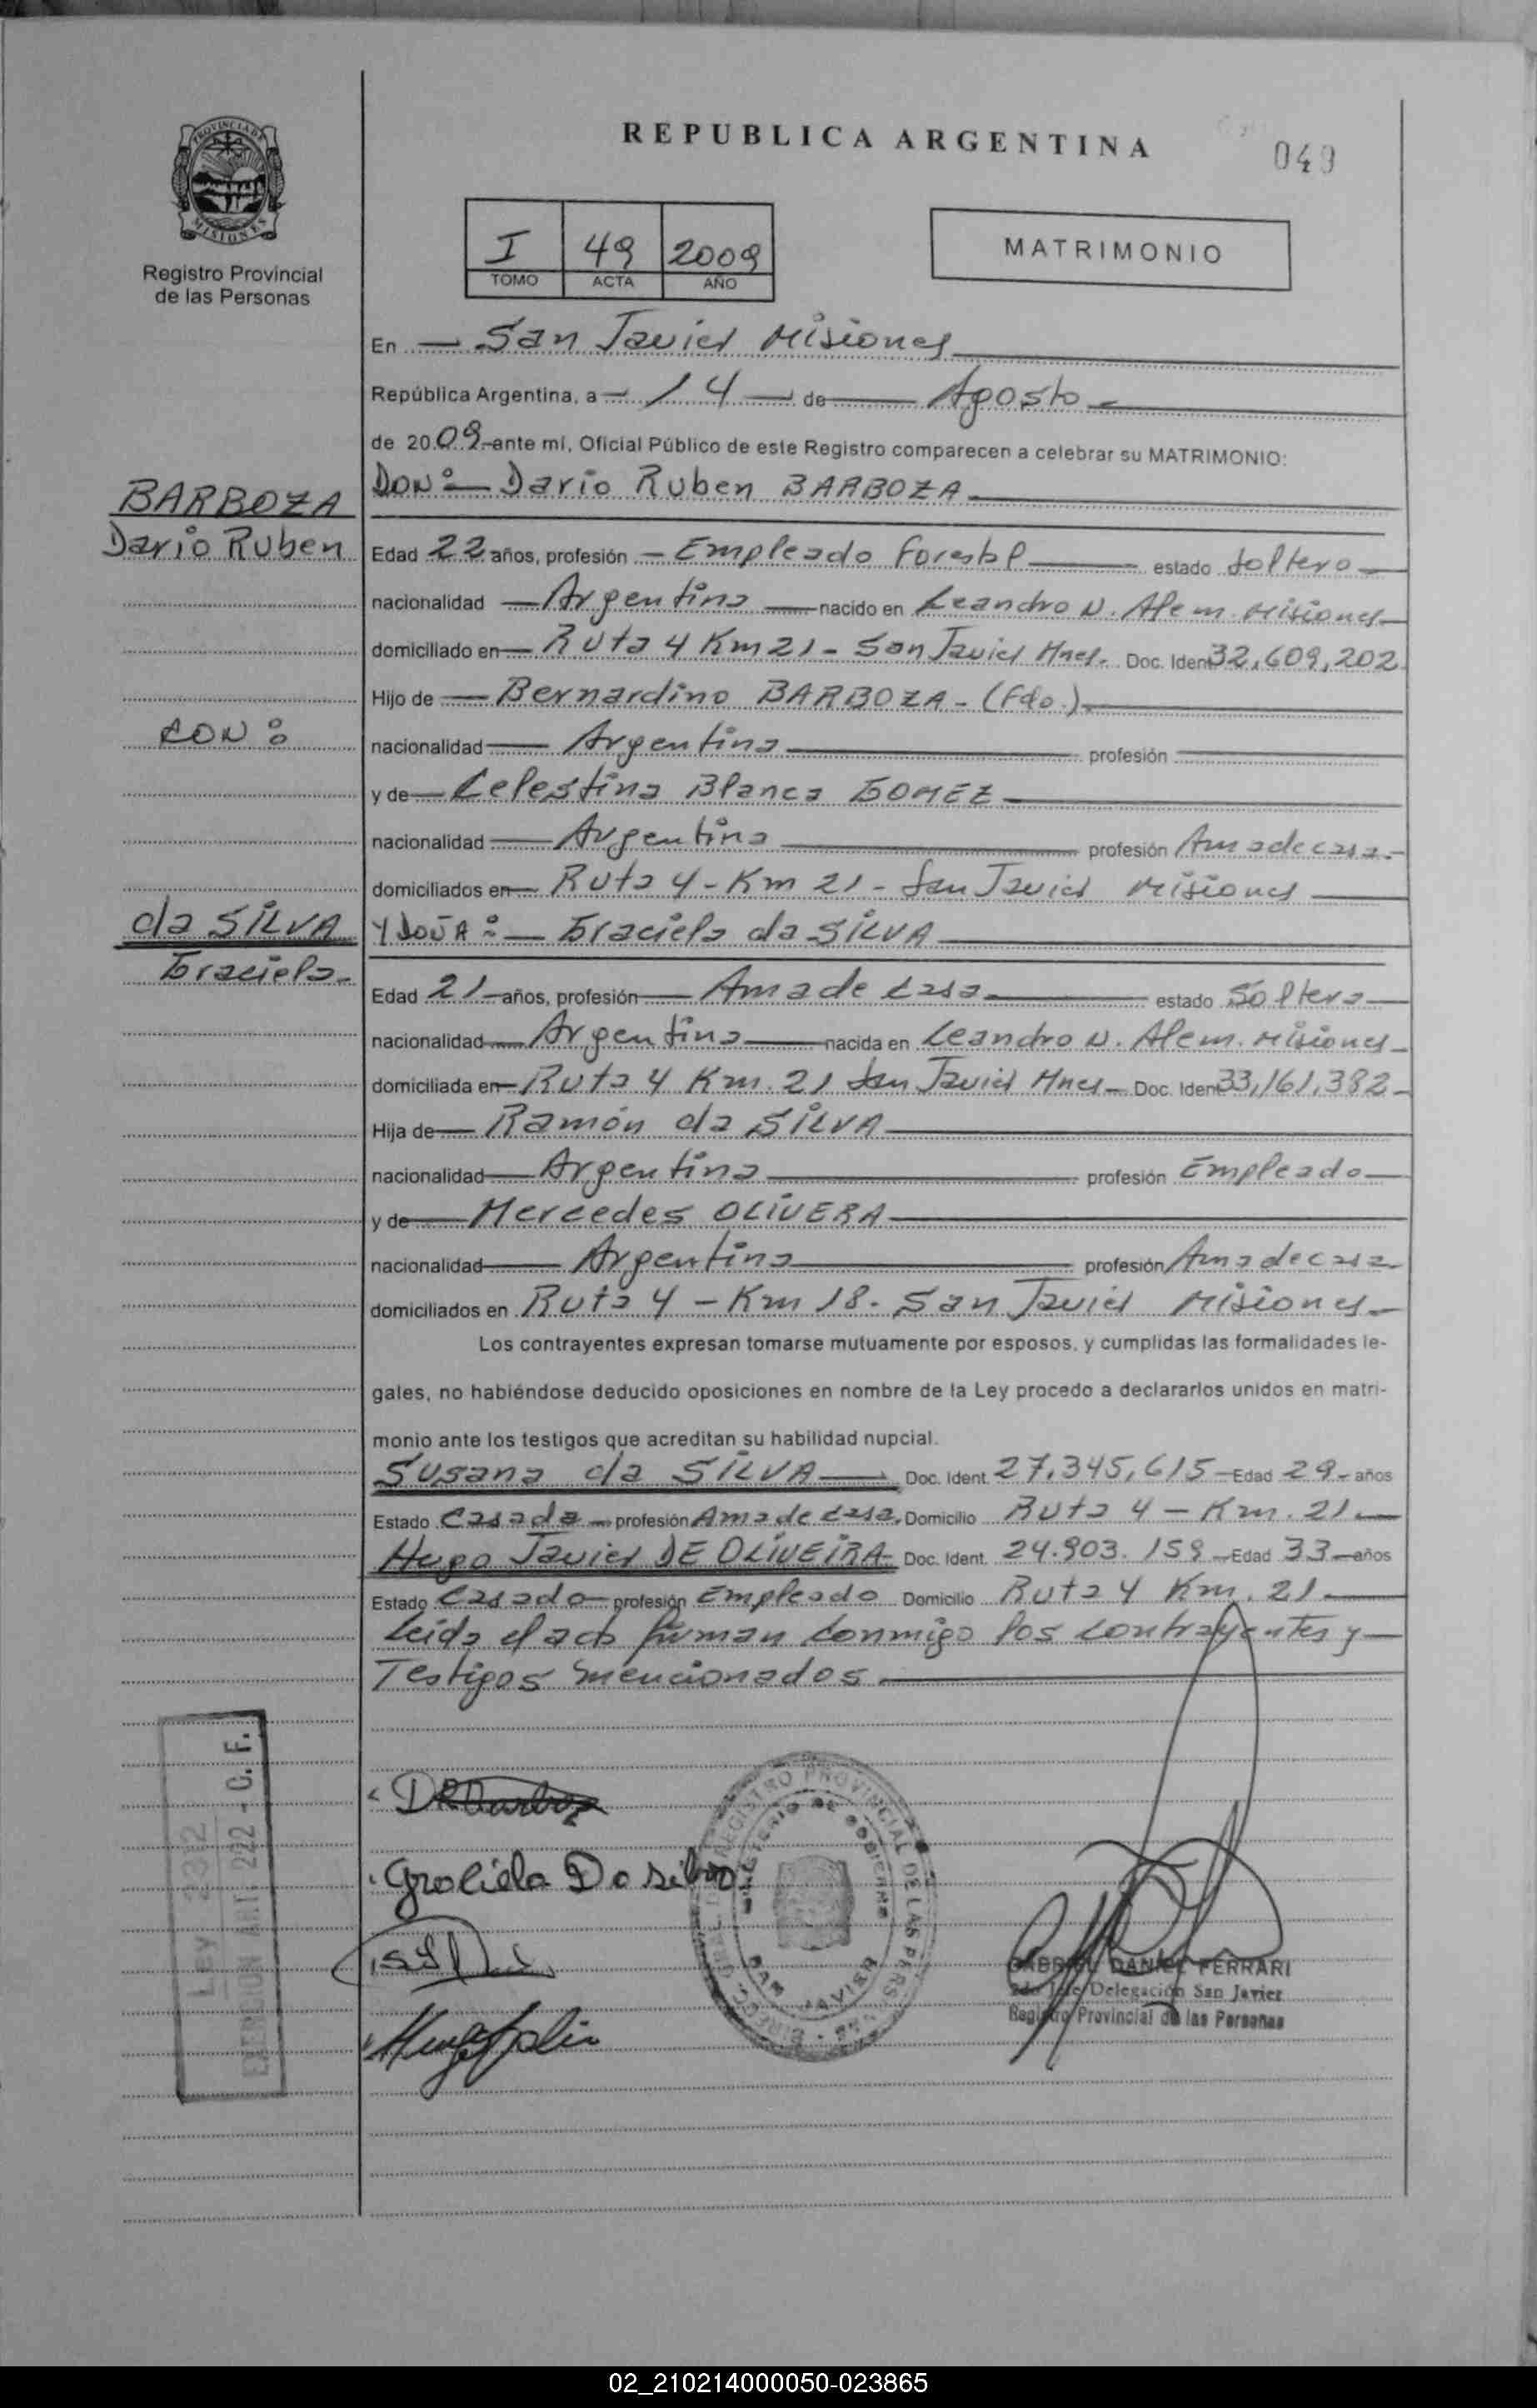 REPUBLICA ARGENTINA
049
PROVINCIA DE
MISIONES
Registro Provincial
de las Personas
I 49 2009
TOMO ACTA AÑO
MATRIMONIO
En San Javier Misiones
República Argentina, a 14 de Agosto
de 2009 ante mí, Oficial Público de este Registro comparecen a celebrar su MATRIMONIO:
BARBOZA
DON: Dario Ruben BARBOZA
Dario Ruben
Edad 22 años, profesión Empleado Forestal estado Soltero
nacionalidad Argentina nacido en Leandro N. Alem. Misiones
domiciliado en Ruta 4 Km 21 - San Javier Mnes. Doc. Ident 32,609,202
Hijo de Bernardino BARBOZA - (Fdo.)
CON:
nacionalidad Argentina profesión
y de Celestina Blanca GOMEZ
nacionalidad Argentina profesión Ama de casa.
domiciliados en Ruta 4 - Km 21 - San Javier Misiones
da SILVA
Y DOÑA: Graciela da SILVA
Graciela.
Edad 21 años, profesión Ama de Casa estado Soltera
nacionalidad Argentina nacida en Leandro N. Alem. Misiones
domiciliada en Ruta 4 Km. 21 San Javier Mnes Doc. Ident 33,161,382
Hija de Ramón da SILVA
nacionalidad Argentina profesión Empleado
y de Mercedes OLIVERA
nacionalidad Argentina profesión Ama de casa
domiciliados en Ruta 4 - Km 18. San Javier Misiones
Los contrayentes expresan tomarse mutuamente por esposos, y cumplidas las formalidades le-
gales, no habiéndose deducido oposiciones en nombre de la Ley procedo a declararlos unidos en matri-
monio ante los testigos que acreditan su habilidad nupcial.
Susana da SILVA Doc. Ident. 27,345,615 Edad 29 años
Estado Casada profesión Ama de casa. Domicilio Ruta 4 - Km. 21
Hugo Javier DE OLIVEIRA Doc. Ident. 24.903.159 Edad 33 años
Estado Casado profesión Empleado Domicilio Ruta 4 Km. 21
Leida el acta firman conmigo los contrayentes y
Testigos mencionados
LEY 2382
EXENCION ART. 222 - C. F.
Graciela Da silva
REGISTRO PROVINCIAL DE LAS PERSONAS
MINISTERIO DE GOBIERNO
SAN JAVIER
GABRIEL DANIEL FERRARI
2do Jefe Delegación San Javier
Registro Provincial de las Personas
02_210214000050-023865